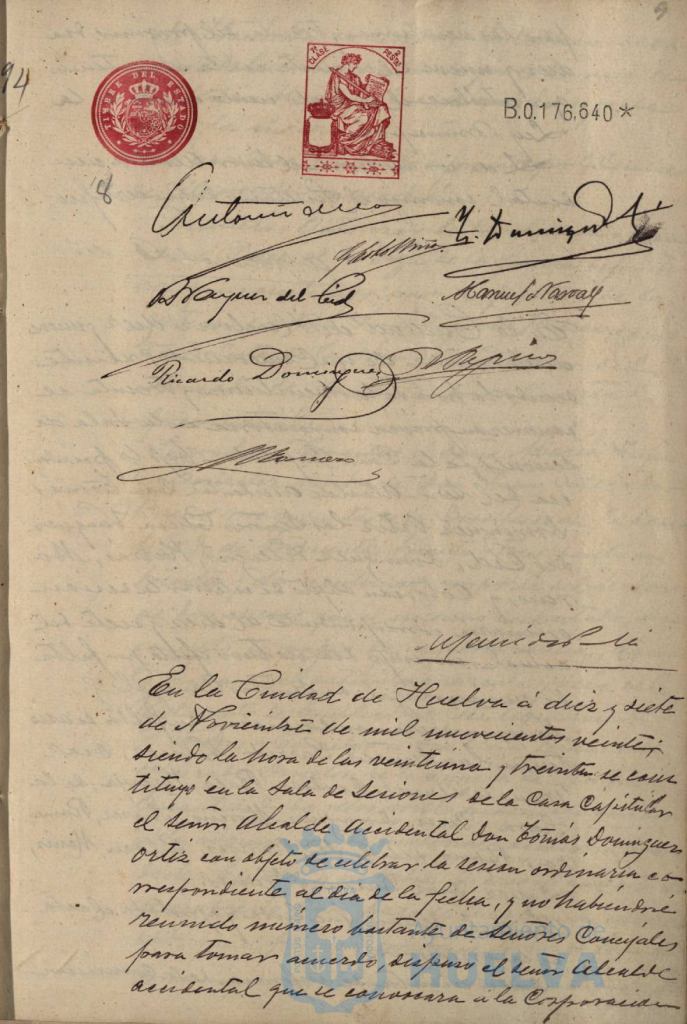 9
94
TIMBRE DEL ESTADO
11ª CLASE
PESETA
B.0.176,640*
8
T. Dominguez
Vazquez del Cid
Manuel Narvaez
Ricardo Dominguez
En la Ciudad de Huelva á diez y siete
de Noviembre de mil nuevecientos veinte;
siendo la hora de las veintiuna y treinta se cons
tituyó en la Sala de Sesiones de la Casa Capitular
el señor Alcalde Accidental Don Tomás Dominguez
Ortiz con objeto de celebrar la sesion ordinaria co
rrespondiente al dia de la fecha, y no habiéndose
reunido número bastante de señores Concejales
para tomar acuerdo, dispuso el señor Alcalde
accidental que se convocara á la Corporacion
HUELVA